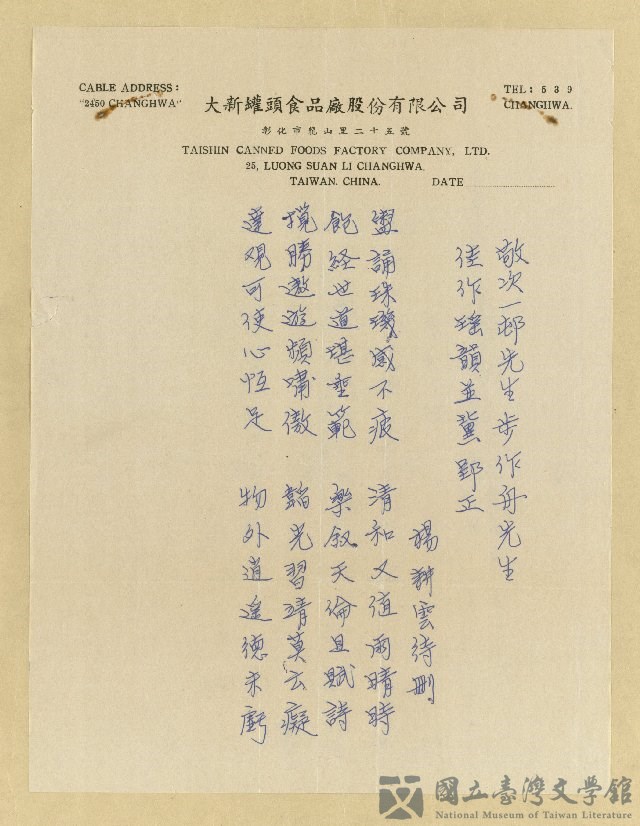 CABLE ADDRESS:
"2450 CHANGHWA"
TEL: 539
CHANGHWA.
大新罐頭食品廠股份有限公司
彰化市龍山里二十五號
TAISHIN CANNED FOODS FACTORY COMPANY, LTD.
25, LUONG SUAN LI CHANGHWA.
TAIWAN. CHINA.
DATE
敬次一邨先生步作舟先生
佳作瑤韻並冀郢正
楊耕雲待刪
盥誦珠璣感不疲 清和又值雨晴時
飽経世道堪垂範 樂叙天倫且賦詩
攬勝遨遊頻嘯傲 韜光習靖莫云癡
達观可使心恆足 物外逍遥德未虧
國立臺灣文學館
National Museum of Taiwan Literature